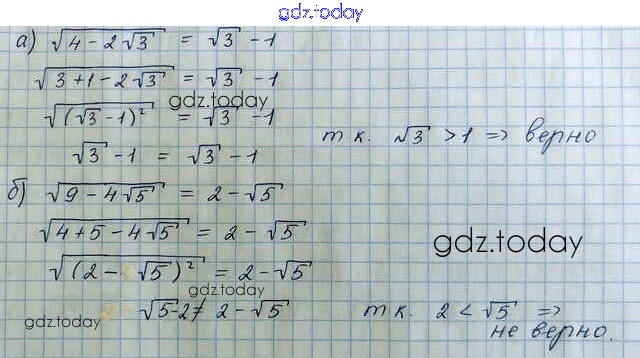 gdz.today
а) √(4 - 2√3) = √3 - 1
√(3 + 1 - 2√3) = √3 - 1
gdz.today
√((√3 - 1)²) = √3 - 1
√3 - 1 = √3 - 1 т.к. √3 > 1 => верно
б) √(9 - 4√5) = 2 - √5
√(4 + 5 - 4√5) = 2 - √5
gdz.today
√((2 - √5)²) = 2 - √5
gdz.today
√5 - 2 ≠ 2 - √5 т.к. 2 < √5 =>
gdz.today
не верно.